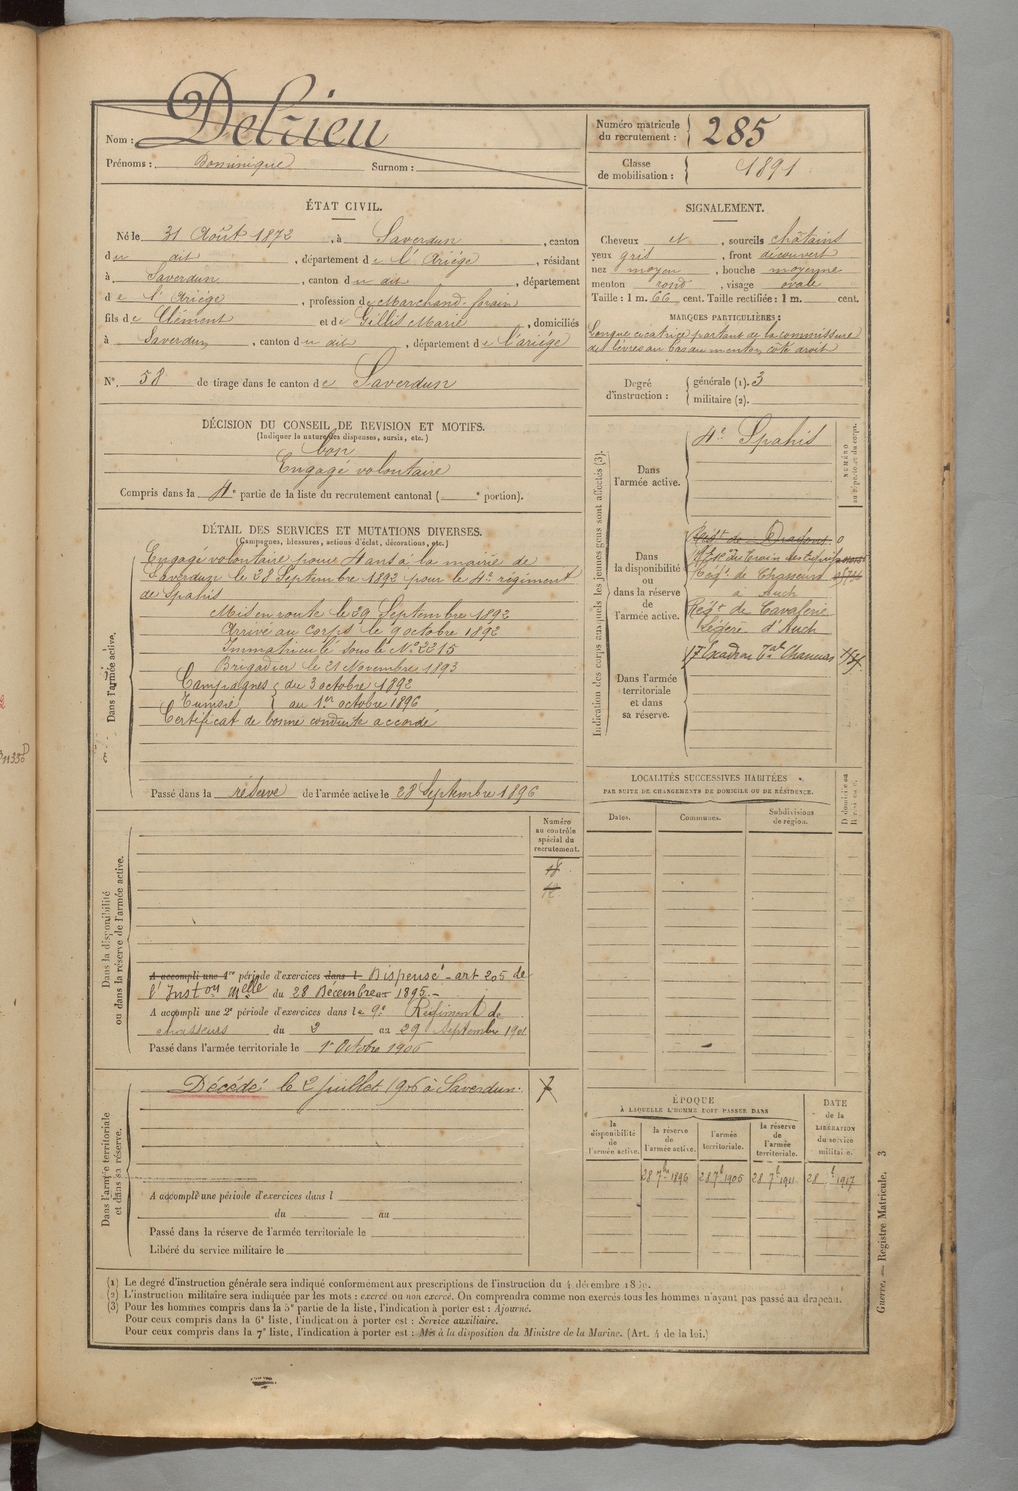 Nom : Delrieu
Prénoms : Dominique Surnom :
Numéro matricule du recrutement : 285
Classe de mobilisation : 1891
ÉTAT CIVIL.
Né le 31 Août 1872, à Saverdun, canton
du dit, département de l'Ariège, résidant
à Saverdun, canton du dit, département
de l'Ariège, profession de Marchand-forain
fils de Clément et de Gillis Marie, domiciliés
à Saverdun, canton du dit, département de l'ariège
N°. 58 de tirage dans le canton de Saverdun
SIGNALEMENT.
Cheveux et, sourcils châtains
yeux gris, front découvert
nez moyen, bouche moyenne
menton rond, visage ovale
Taille : 1 m. 66 cent. Taille rectifiée : 1 m. cent.
MARQUES PARTICULIÈRES :
Longue cicatrice partant de la commissure
des lèvres au bas du menton, côté droit
Degré d'instruction : générale (1). 3
militaire (2).
DÉCISION DU CONSEIL DE REVISION ET MOTIFS.
(Indiquer la nature des dispenses, sursis, etc.)
bon
Engagé volontaire
Compris dans la 4e partie de la liste du recrutement cantonal ( e portion).
DÉTAIL DES SERVICES ET MUTATIONS DIVERSES.
(Campagnes, blessures, actions d'éclat, décorations, etc.)
Dans l'armée active.
Engagé volontaire pour 4 ans à la mairie de
Saverdun le 28 Septembre 1892 pour le 4e régiment
de Spahis
Mis en route le 29 Septembre 1892
Arrivé au corps le 9 octobre 1892
Immatriculé sous le N° 2215
Brigadier le 21 Novembre 1893
Campagnes { du 3 octobre 1892
Tunisie } au 1er octobre 1896
Certificat de bonne conduite accordé
Passé dans la réserve de l'armée active le 28 Septembre 1896
Indication des corps auxquels les jeunes gens sont affectés (3).
NUMÉRO au répertoire du corps.
Dans l'armée active.
4e Spahis
Dans la disponibilité ou dans la réserve de l'armée active.
Régt de Dragons
Régt de Chasseurs
à Auch
Régt de Cavalerie
Légère d'Auch
17 Escadron Chasseurs
Dans l'armée territoriale et dans sa réserve.
LOCALITÉS SUCCESSIVES HABITÉES
PAR SUITE DE CHANGEMENTS DE DOMICILE OU DE RÉSIDENCE.
Dates. Communes. Subdivisions de région.
Dans la disponibilité ou dans la réserve de l'armée active.
Numéro au contrôle spécial du recrutement.
A accompli une 1re période d'exercices dans l Dispensé - art 205 de
l'Inston Melle du 28 Décembre au 1895.-
A accompli une 2e période d'exercices dans le 9e Régiment de
chasseurs du 2 au 29 Septembre 1901
Passé dans l'armée territoriale le 1r Octobre 1906
Dans l'armée territoriale et dans sa réserve.
Décédé le 2 juillet 1906 à Saverdun.
A accompli une période d'exercices dans l
du au
Passé dans la réserve de l'armée territoriale le
Libéré du service militaire le
ÉPOQUE
À LAQUELLE L'HOMME DOIT PASSER DANS
la disponibilité de l'armée active.
la réserve de l'armée active.
l'armée territoriale.
la réserve de l'armée territoriale.
DATE de la LIBÉRATION du service militaire.
28 7b 1896
28 7b 1906
28 7b 1911
28 1917
(1) Le degré d'instruction générale sera indiqué conformément aux prescriptions de l'instruction du 4 décembre
(2) L'instruction militaire sera indiquée par les mots : exercé ou non exercé. On comprendra comme non exercés tous les hommes n'ayant pas passé au drapeau.
(3) Pour les hommes compris dans la 5e partie de la liste, l'indication à porter est : Ajourné.
Pour ceux compris dans la 6e liste, l'indication à porter est : Service auxiliaire.
Pour ceux compris dans la 7e liste, l'indication à porter est : Mis à la disposition du Ministre de la Marine. (Art. 4 de la loi.)
Guerre. — Registre Matricule. 3